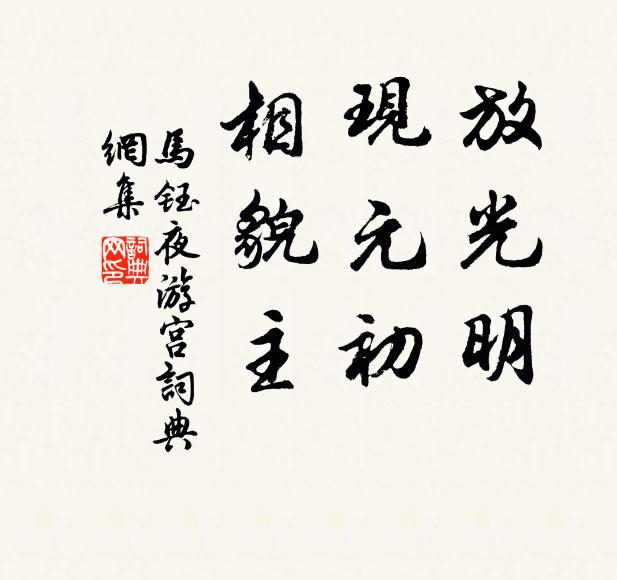 放光明
現元初
相貌主
馬鈺夜游宮詞典
網集
詞典
网印